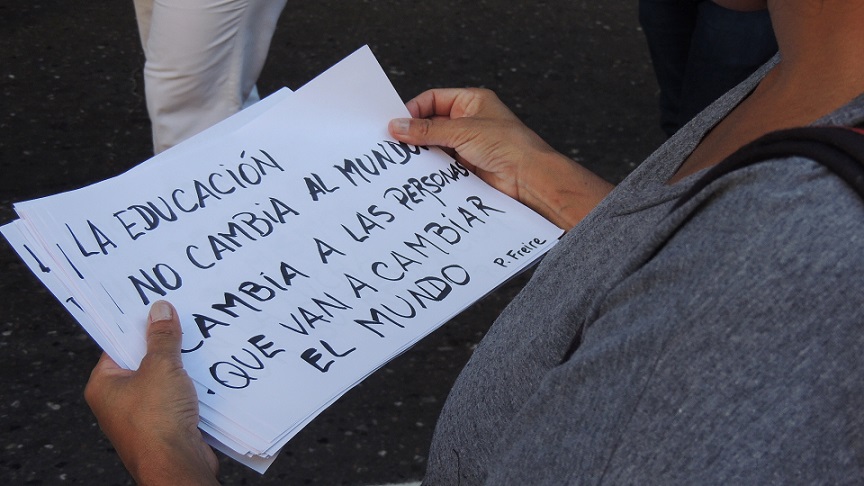 LA EDUCACIÓN
NO CAMBIA AL MUNDO
CAMBIA A LAS PERSONAS
QUE VAN A CAMBIAR
EL MUNDO
P. Freire